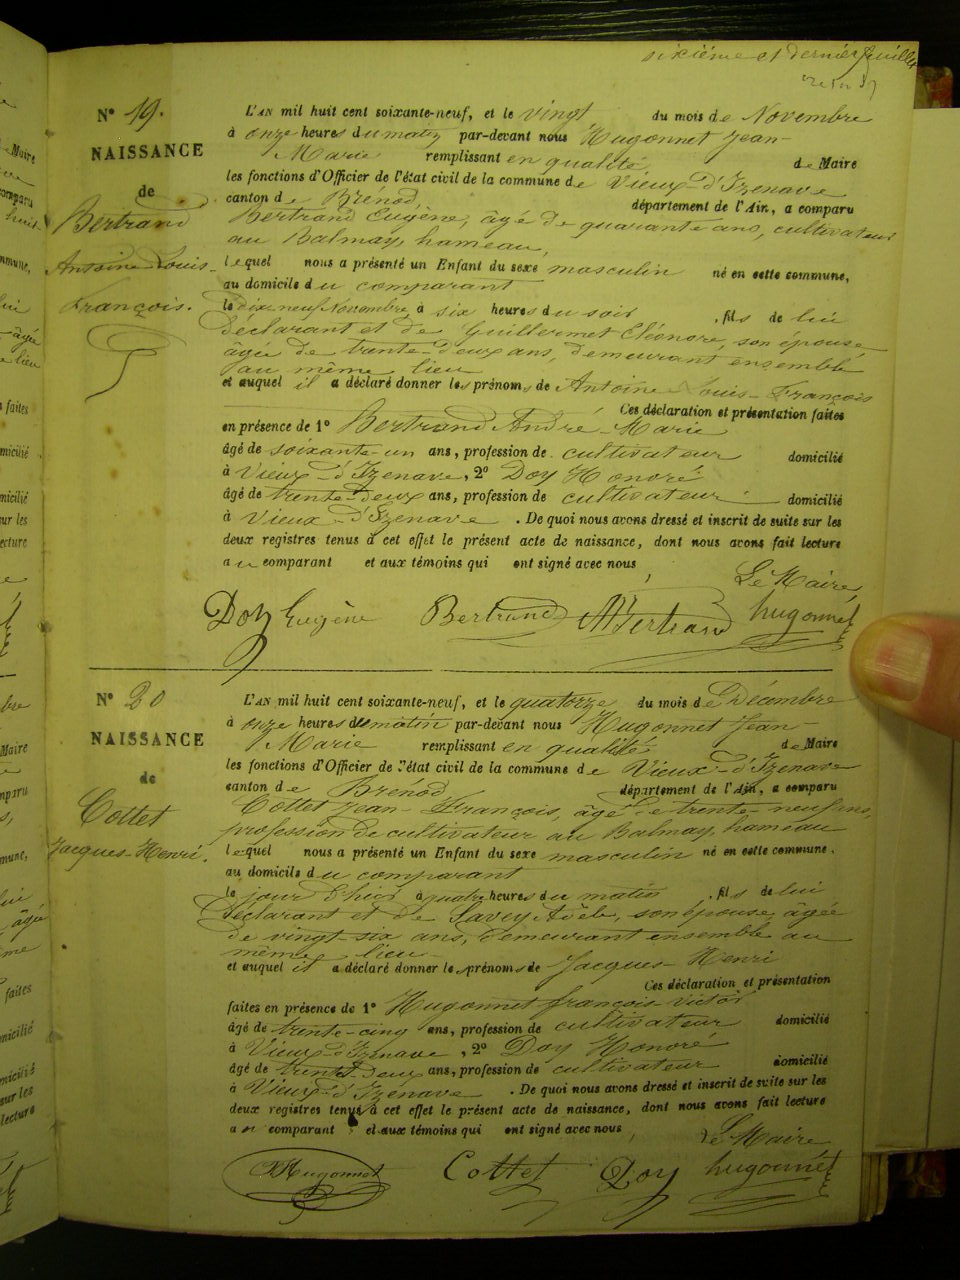 sixième et dernier feuillet
N° 19.
NAISSANCE
de
Bertrand
Antoine-Louis-
François.
L'AN mil huit cent soixante-neuf, et le vingt du mois de Novembre
à onze heures du matin par-devant nous Hugonnet Jean-
Marie remplissant en qualité de Maire
les fonctions d'Officier de l'état civil de la commune de Vieux-d'Izenave
canton de Brénod, département de l'Ain, a comparu
Bertrand Eugène, âgé de quarante ans, cultivateur
au Balmay, hameau,
lequel nous a présenté un Enfant du sexe masculin né en cette commune,
au domicile du comparant
le dix neuf Novembre à six heures du soir, fils de lui
déclarant et de Guillermet Eléonore, son épouse
âgée de trente-deux ans, demeurant ensemble
au même lieu
et auquel il a déclaré donner les prénoms de Antoine Louis-François
Ces déclaration et présentation faites
en présence de 1° Bertrand André-Marie
âgé de soixante-un ans, profession de cultivateur domicilié
à Vieux-d'Izenave, 2° Doy Honoré
âgé de trente-deux ans, profession de cultivateur domicilié
à Vieux-d'Izenave. De quoi nous avons dressé et inscrit de suite sur les
deux registres tenus à cet effet le présent acte de naissance, dont nous avons fait lecture
au comparant et aux témoins qui ont signé avec nous,
Le Maire,
Doy Eugène Bertrand ABertrand hugonnet
N° 20
NAISSANCE
de
Cottet
Jacques-Henri.
L'AN mil huit cent soixante-neuf, et le quatorze du mois de Décembre
à onze heures du matin par-devant nous Hugonnet Jean-
Marie remplissant en qualité de Maire
les fonctions d'Officier de l'état civil de la commune de Vieux-d'Izenave
canton de Brénod département de l'Ain, a comparu
Cottet Jean-François, âgé de trente-neuf ans,
profession de cultivateur au Balmay, hameau
lequel nous a présenté un Enfant du sexe masculin né en cette commune.
au domicile du comparant
le jour d'hier à quatre heures du matin, fils de lui
déclarant et de Savey Adèle, son épouse, âgée
de vingt-six ans, demeurant ensemble au
même lieu
et auquel il a déclaré donner les prénoms de Jacques-Henri
Ces déclaration et présentation
faites en présence de 1° Hugonnet françois-victor
âgé de trente-cinq ans, profession de cultivateur domicilié
à Vieux-d'Izenave, 2° Doy Honoré
âgé de trente-deux ans, profession de cultivateur domicilié
à Vieux-d'Izénave. De quoi nous avons dressé et inscrit de suite sur les
deux registres tenus à cet effet le présent acte de naissance, dont nous avons fait lecture
au comparant et aux témoins qui ont signé avec nous,
Le Maire
Hugonnet Cottet Doy hugonnet